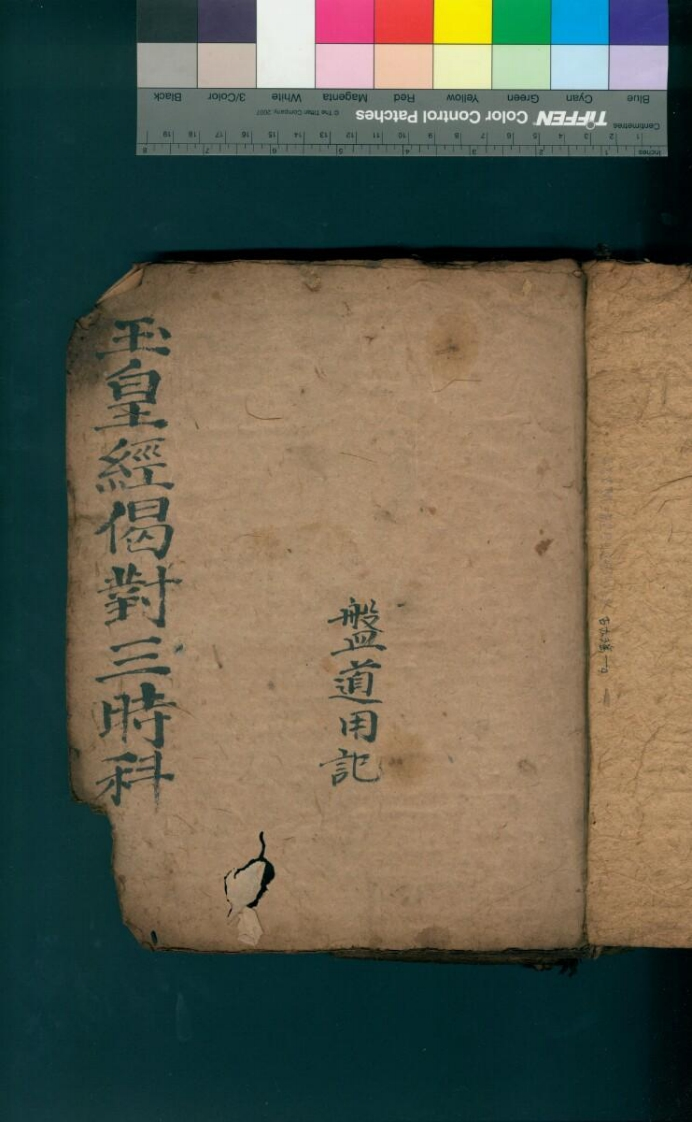 Blue
Cyan
Green
Yellow
Red
Magenta
White
3/Color
Black
TIFFEN Color Control Patches
© The Tiffen Company, 2007
Centimetres
1 2 3 4 5 6 7 8 9 10 11 12 13 14 15 16 17 18 19
Inches
1 2 3 4 5 6 7 8
盤道用記
玉皇經偈對三時科